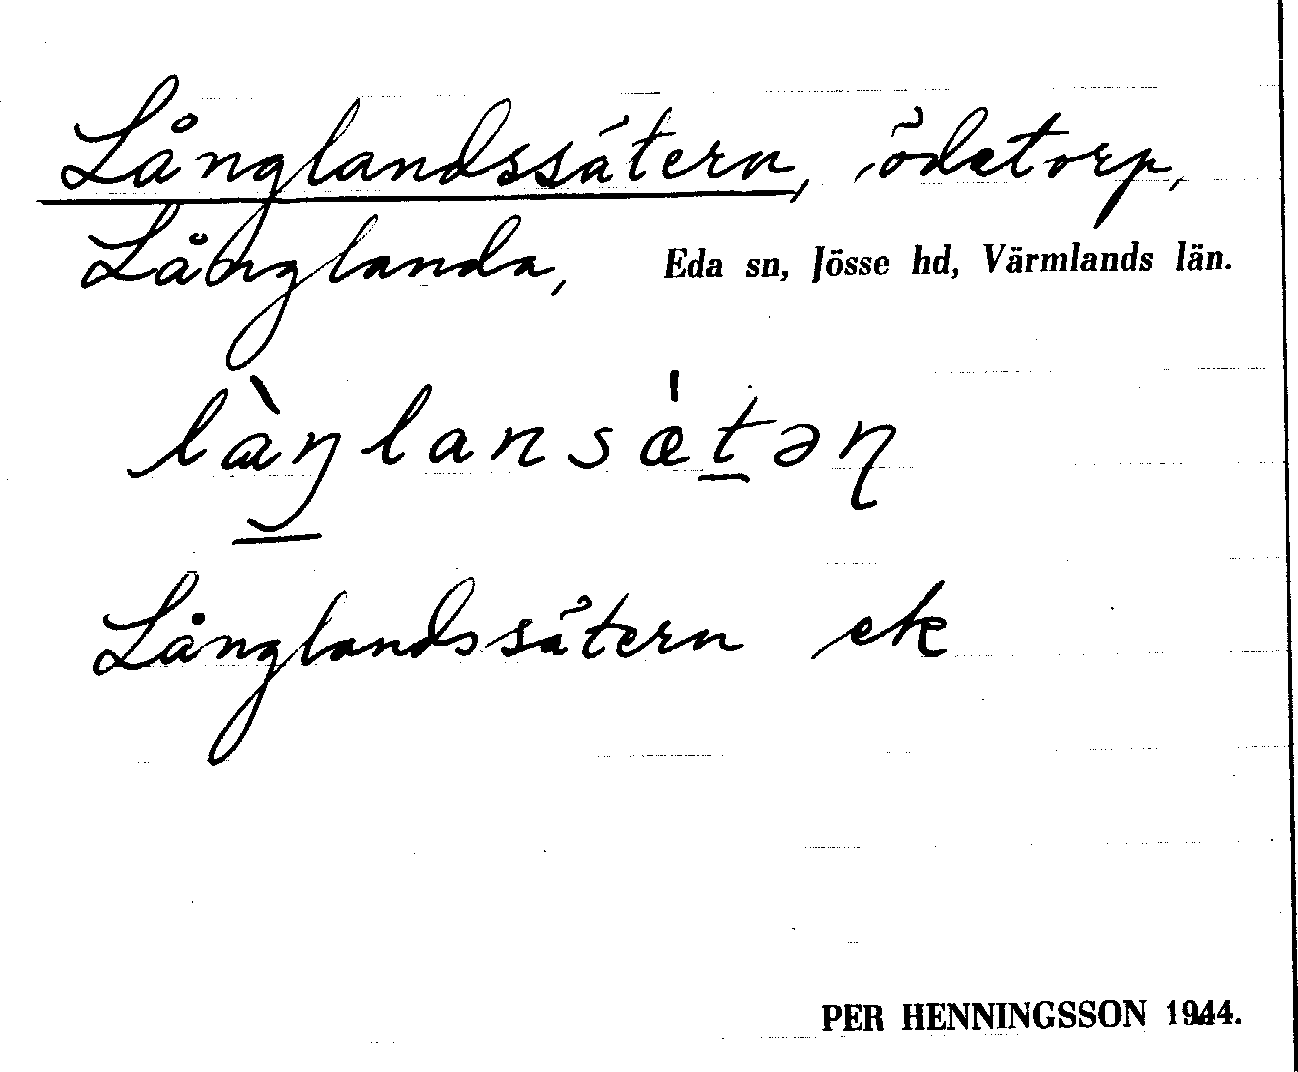 Långlandssätern, ödetorp,
Långlanda, Eda sn, Jösse hd, Värmlands län.
là̱ŋlansǽṯəɳ
Långlandssätern ek
PER HENNINGSSON 1944.